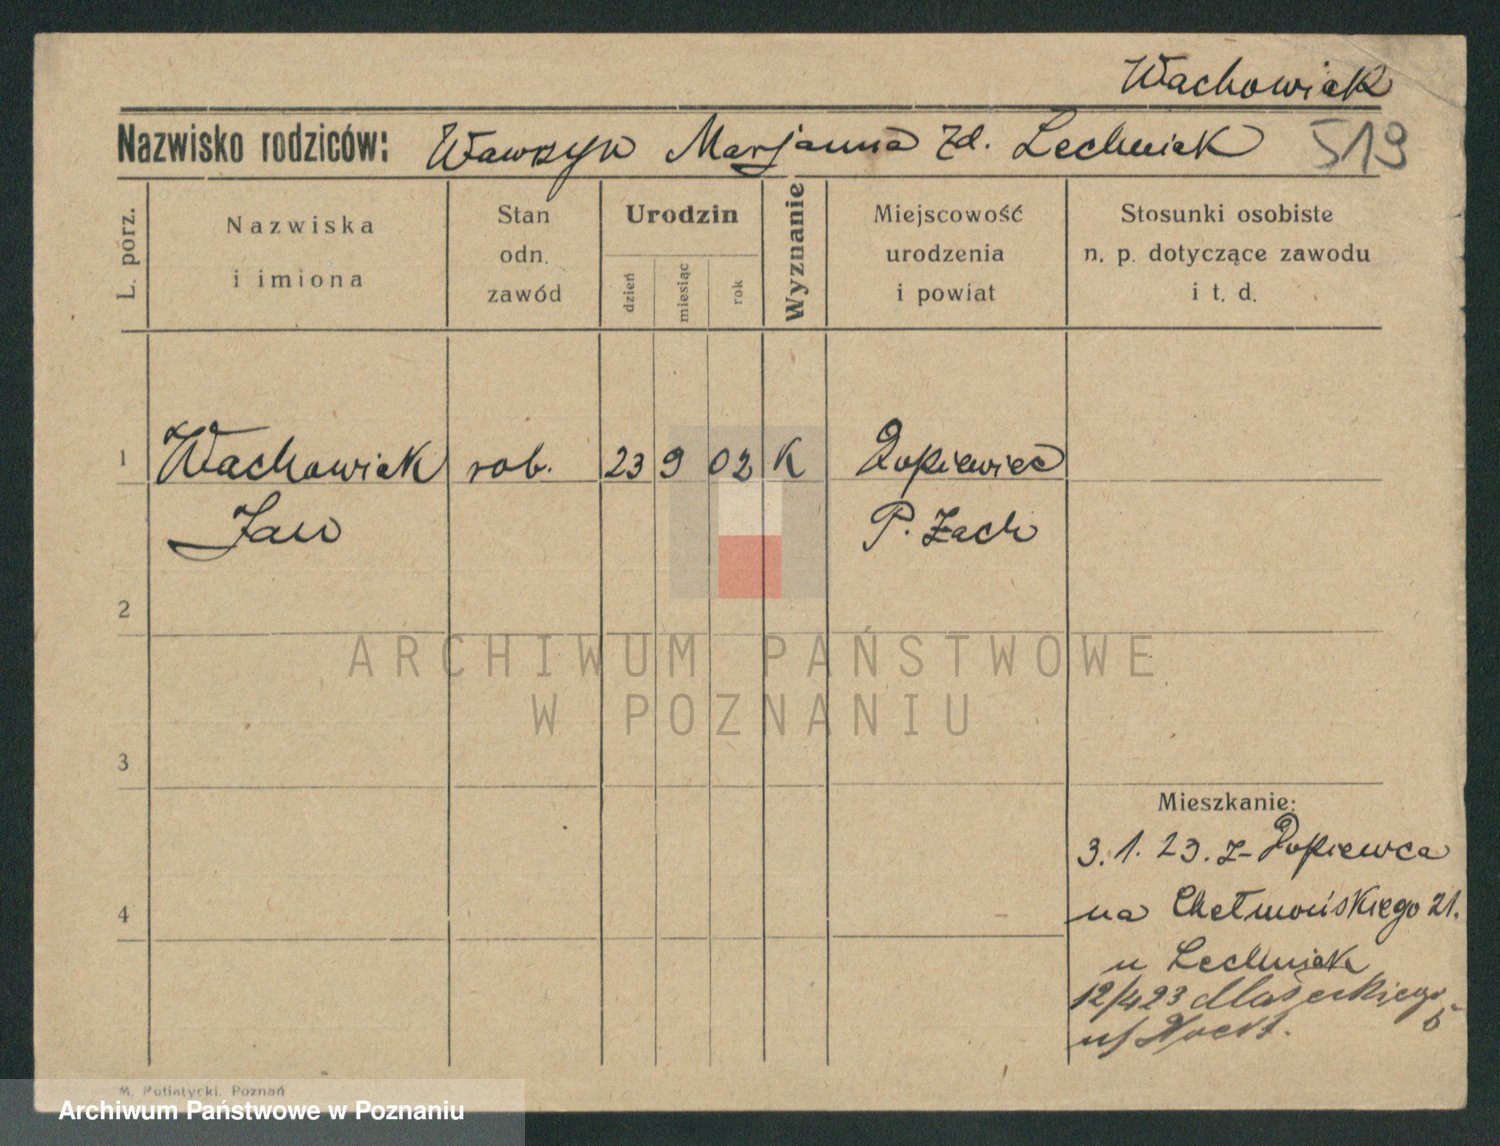 Wachowiak
Nazwisko rodziców: Wawrzyn Marjanna zd. Lechniak 519
L. porz.
Nazwiska
i imiona
Stan
odn.
zawód
Urodzin
dzień
miesiąc
rok
Wyznanie
Miejscowość
urodzenia
i powiat
Stosunki osobiste
n. p. dotyczące zawodu
i t. d.
1 Wachowiak rob. 23 9 02 K Dopiewiec
Jan P. Zach
2
ARCHIWUM PAŃSTWOWE
W POZNANIU
3
Mieszkanie:
3. 1. 23. z Dopiewca
4
na Chełmońskiego 21.
u Lechniak
12/4 23
M. Putiatycki, Poznań
Archiwum Państwowe w Poznaniu